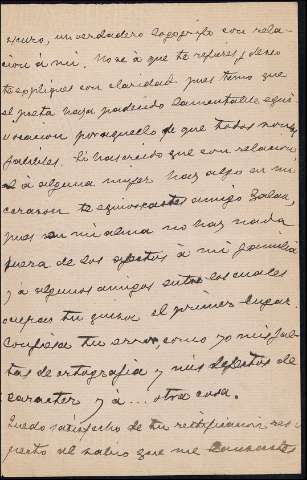 oscuro, un verdadero logogrifo con rela-
cion á mi. No se á que te refieres y deseo
te expliques con claridad pues temo que
el poeta haya padecido lamentable equi-
vocacion por aquello de que todos somos
falibles. Si has creido que con relacion
á alguna mujer hay algo en mi
corazon te equivocaste amigo
pues en mi alma no hay nada
fuera de los afectos á mi familia
y á algunos amigos entre los cuales
ocupas tu quizá el primer lugar.
Confiesa tu error, como yo mis fal-
tas de ortografia y mis defectos de
caracter y á ... otra cosa.
Quedo satisfecho de tu rectificacion res-
pecto al sabio que me